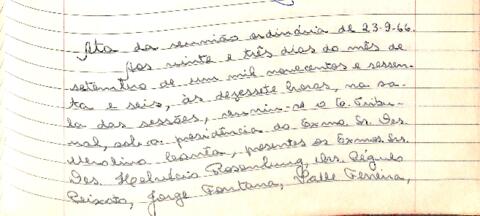 Ata da reunião ordinária de 23-9-66.
Aos vinte e três dias do mês de
setembro de um mil novecentos e sessen-
ta e seis, às dezessete horas, na sa-
la das sessões, reuniu-se o E. Tribu-
nal, sob a presidência do Exmo Sr. Des.
, presentes os Exmos Srs.
Des. Rosenburg, Drs. Régulo
Peixoto, Jorge Fontana, Ferreira,